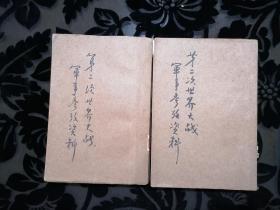 第二次世界大战
军事参考资料
第二次世界大战
軍事参考资料